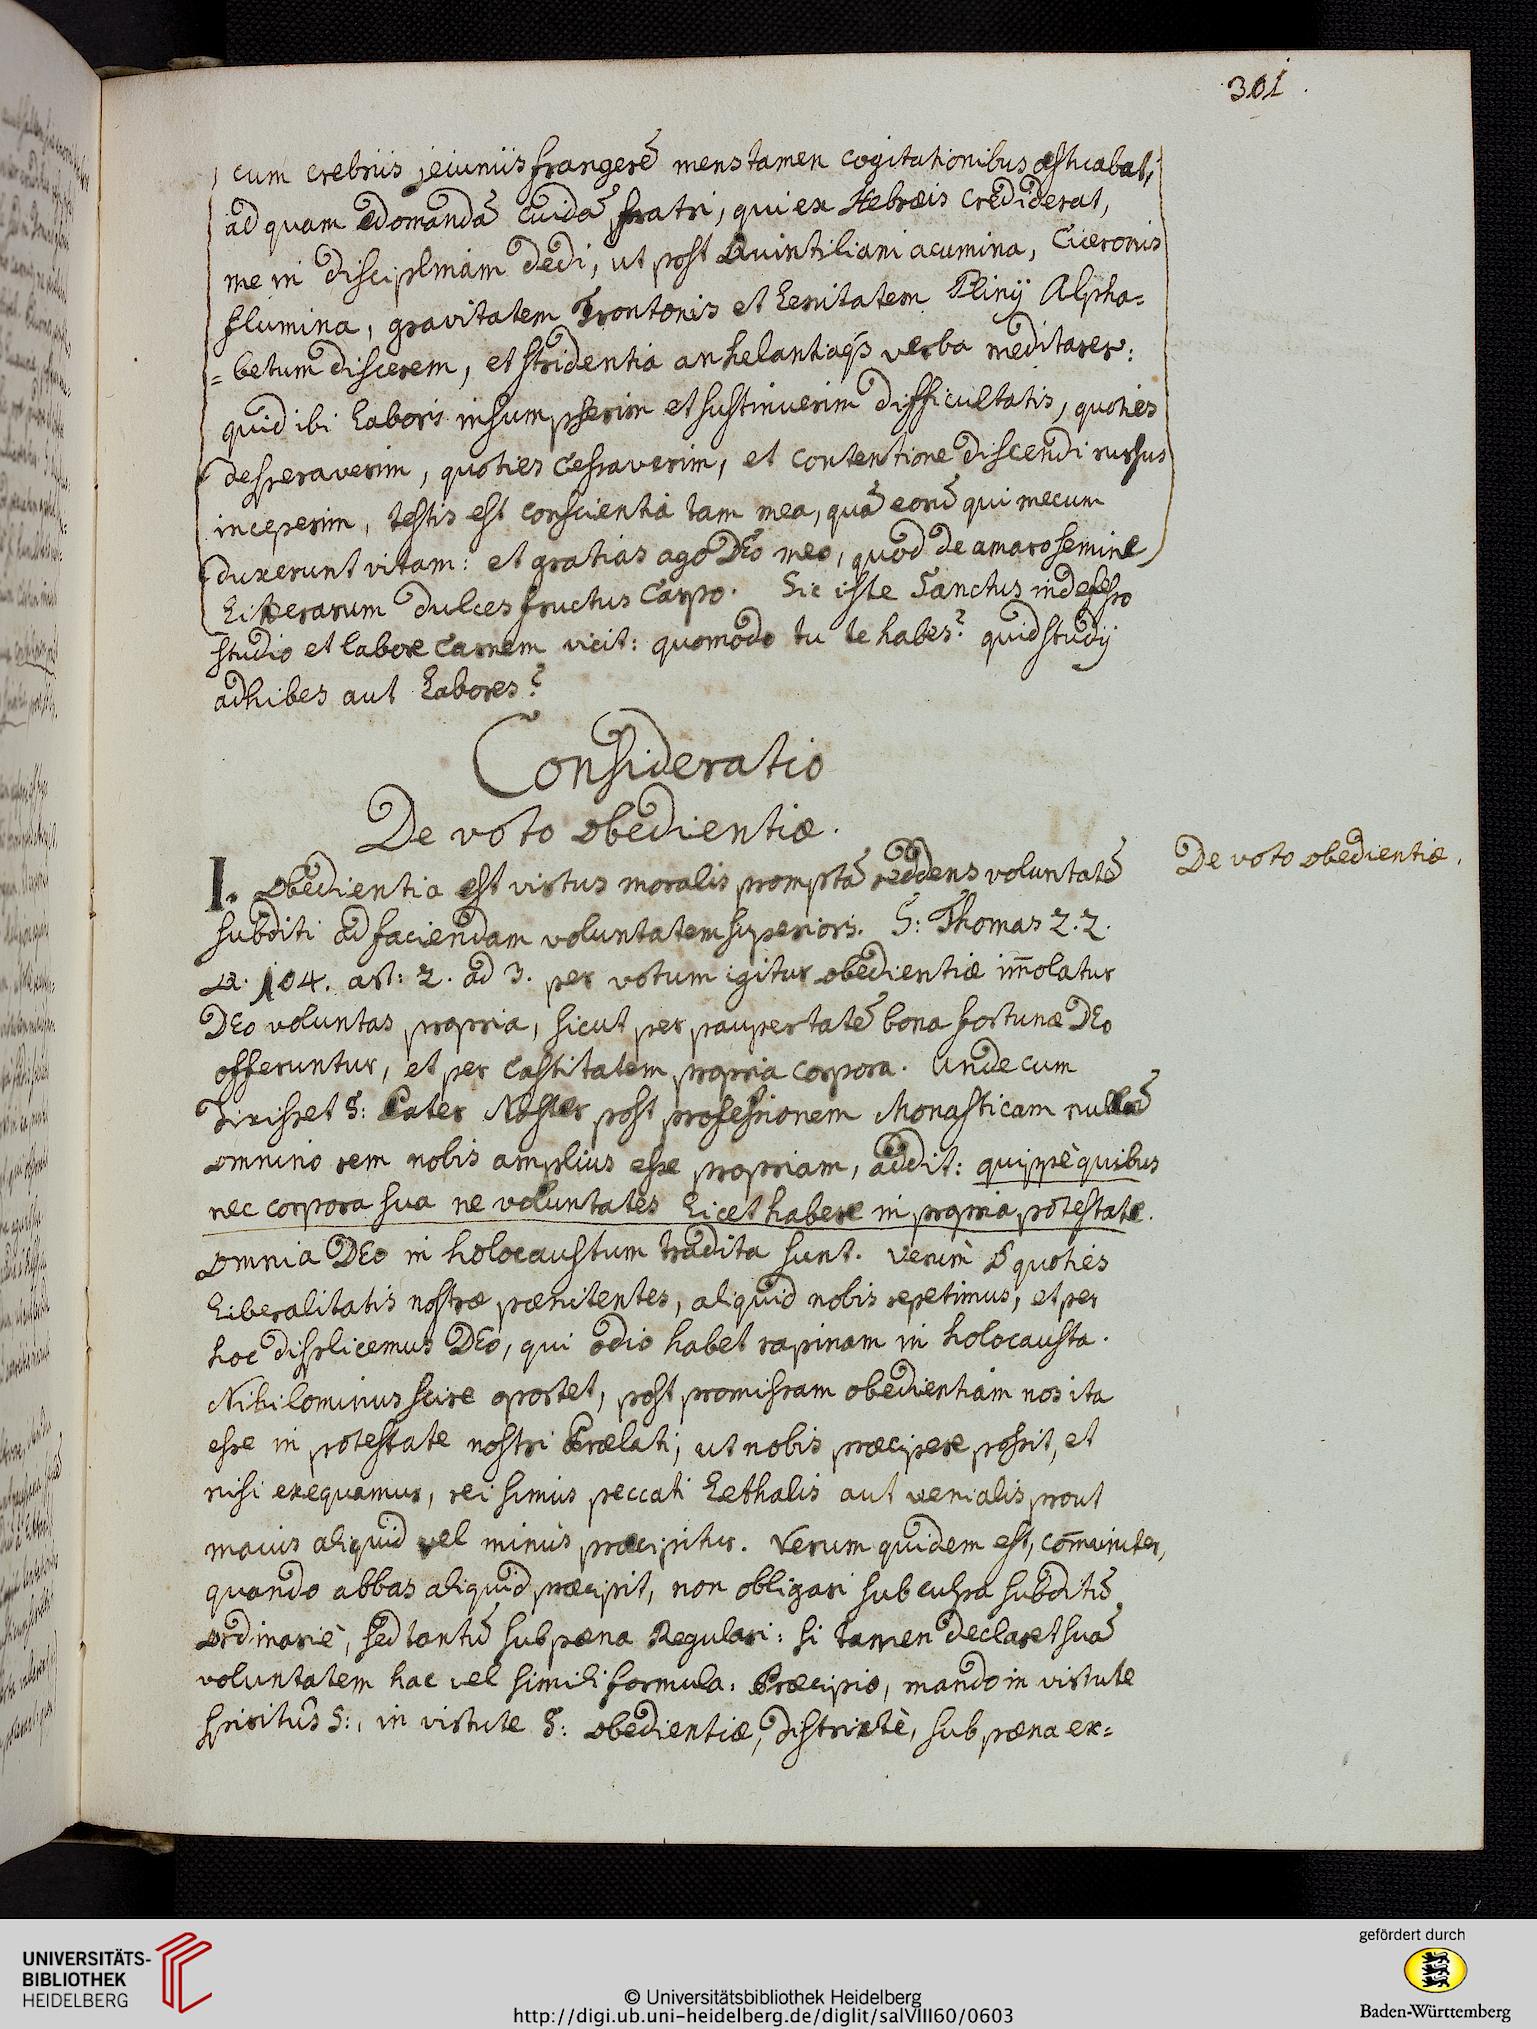 301.
cum crebris jeiuniis frangerē mens tamen cogitationibus æstuabat,
ad quam edomandā cuidā fratri, qui ex Hebræis crediderat,
me in disciplinam dedi, ut post Quintiliani acumina, Ciceronis
flumina, gravitatem Frontonis et Lenitatem Plinij Alpha=
=betum discerem, et stridentia anhelantiaq́s verba meditarer:
quid ibi Laboris insumpserim et sustinuerim difficultatis, quoties
desperaverim, quoties cessaverim, et contentione discendi rursus
inceperim, testis est conscientia tam mea, quā eorū qui mecum
duxerunt vitam: et gratias ago DEo meo, quod de amaro semine
Literarum dulces fructus carpo. Sic iste Sanctus indefesso
studio et labore carnem vicit: quomodo tu te habes? quid studij
adhibes aut Labores?
Consideratio
De voto obedientiæ.
De voto obedientiæ.
I. Obedientia est virtus moralis promptā reddens voluntatē
subditi ad faciendam voluntatem superioris. S: Thomas 2. 2.
Q. 104. art: 2. ad 3. per votum igitur obedientiæ im̄olatur
DEo voluntas propria, sicut per paupertatē bona fortunæ DEo
offeruntur, et per castitatem propria corpora. Unde cum
dixisset S: Pater Noster post professionem Monasticam nullā
omnino rem nobis amplius esse propriam, addit: quippè quibus
nec corpora sua ne voluntates Licet habere in propria potestate.
Omnia DEo in holocaustum tradita sunt. Verum ô quoties
Liberalitatis nostræ pœnitentes, aliquid nobis repetimus, et per
hoc displicemus DEo, qui odio habet rapinam in holocausta.
Nihilominus scire oportet, post promissam obedientiam nos ita
esse in potestate nostri Prælati, ut nobis præcipere possit, et
nisi exequamur, rei simus peccati Lethalis aut venialis prout
maius aliquid vel minus præcipitur. Verum quidem est, com̄uniter,
quando abbas aliquid præcipit, non obligari sub culpa subditū
ordinariè, sed tantū sub pœna Regulari: si tamen declaret suā
voluntatem hac vel simili formula: Præcipio, mando in virtute
spiritûs S:, in virtute S: obedientiæ, districtè, sub pœna ex=
UNIVERSITÄTS-
BIBLIOTHEK
HEIDELBERG
© Universitätsbibliothek Heidelberg
http://digi.ub.uni-heidelberg.de/diglit/salVIII60/0603
gefördert durch
Baden-Württemberg